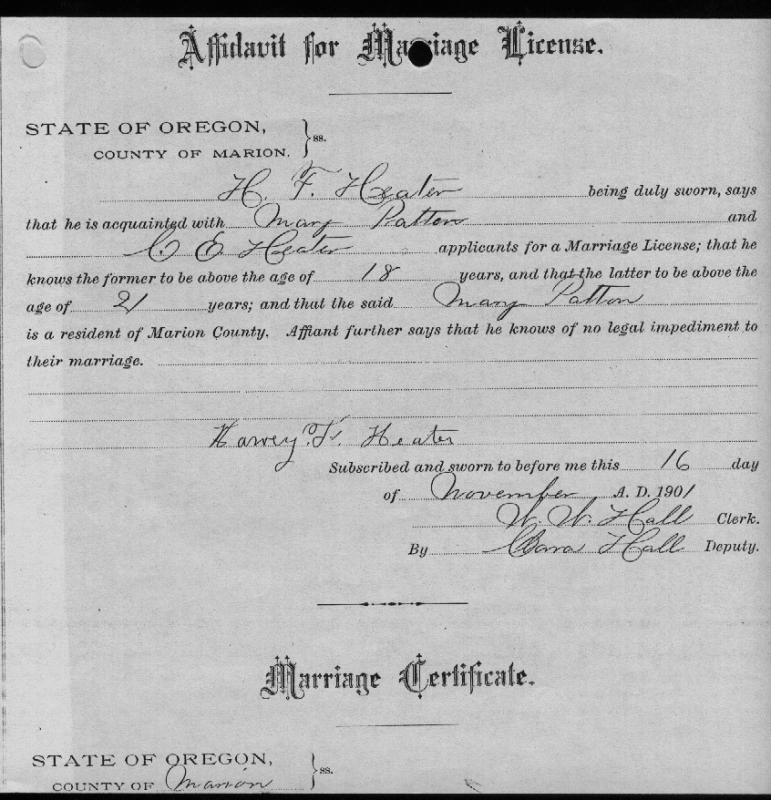 Affidavit for Marriage License.
STATE OF OREGON,
COUNTY OF MARION. } ss.
H. F. Heater being duly sworn, says
that he is acquainted with Mary Patton and
C E Heater applicants for a Marriage License; that he
knows the former to be above the age of 18 years, and that the latter to be above the
age of 21 years; and that the said Mary Patton
is a resident of Marion County. Affiant further says that he knows of no legal impediment to
their marriage.
Harvey. F. Heater
Subscribed and sworn to before me this 16 day
of November A. D. 1901
W. W. Hall Clerk.
By Hall Deputy.
Marriage Certificate.
STATE OF OREGON,
COUNTY OF Marion } ss.